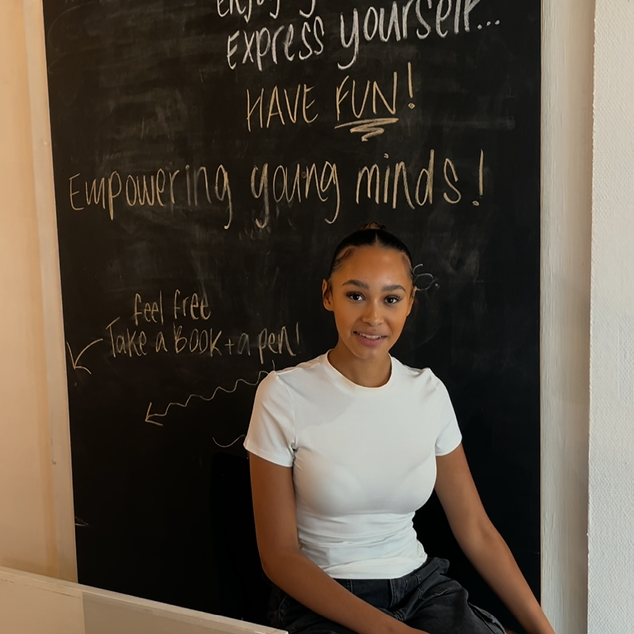 Enjoy
Express yourself...
HAVE FUN!
Empowering young minds!
feel free
Take a Book + a pen!